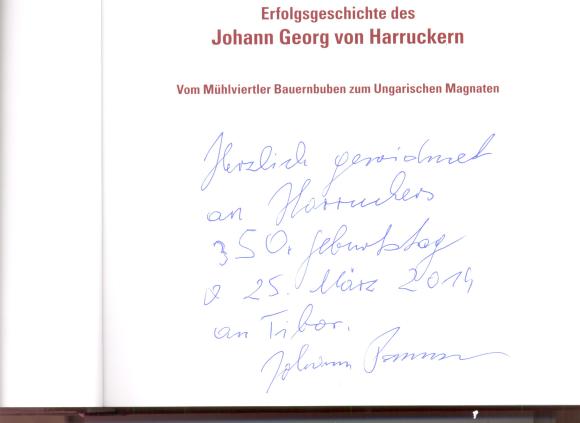 Erfolgsgeschichte des
Johann Georg von Harruckern
Vom Mühlviertler Bauernbuben zum Ungarischen Magnaten
Herzlich gewidmet
an Harruckers
350. Geburtstag
25. März 2014
an Tibor.
Johann